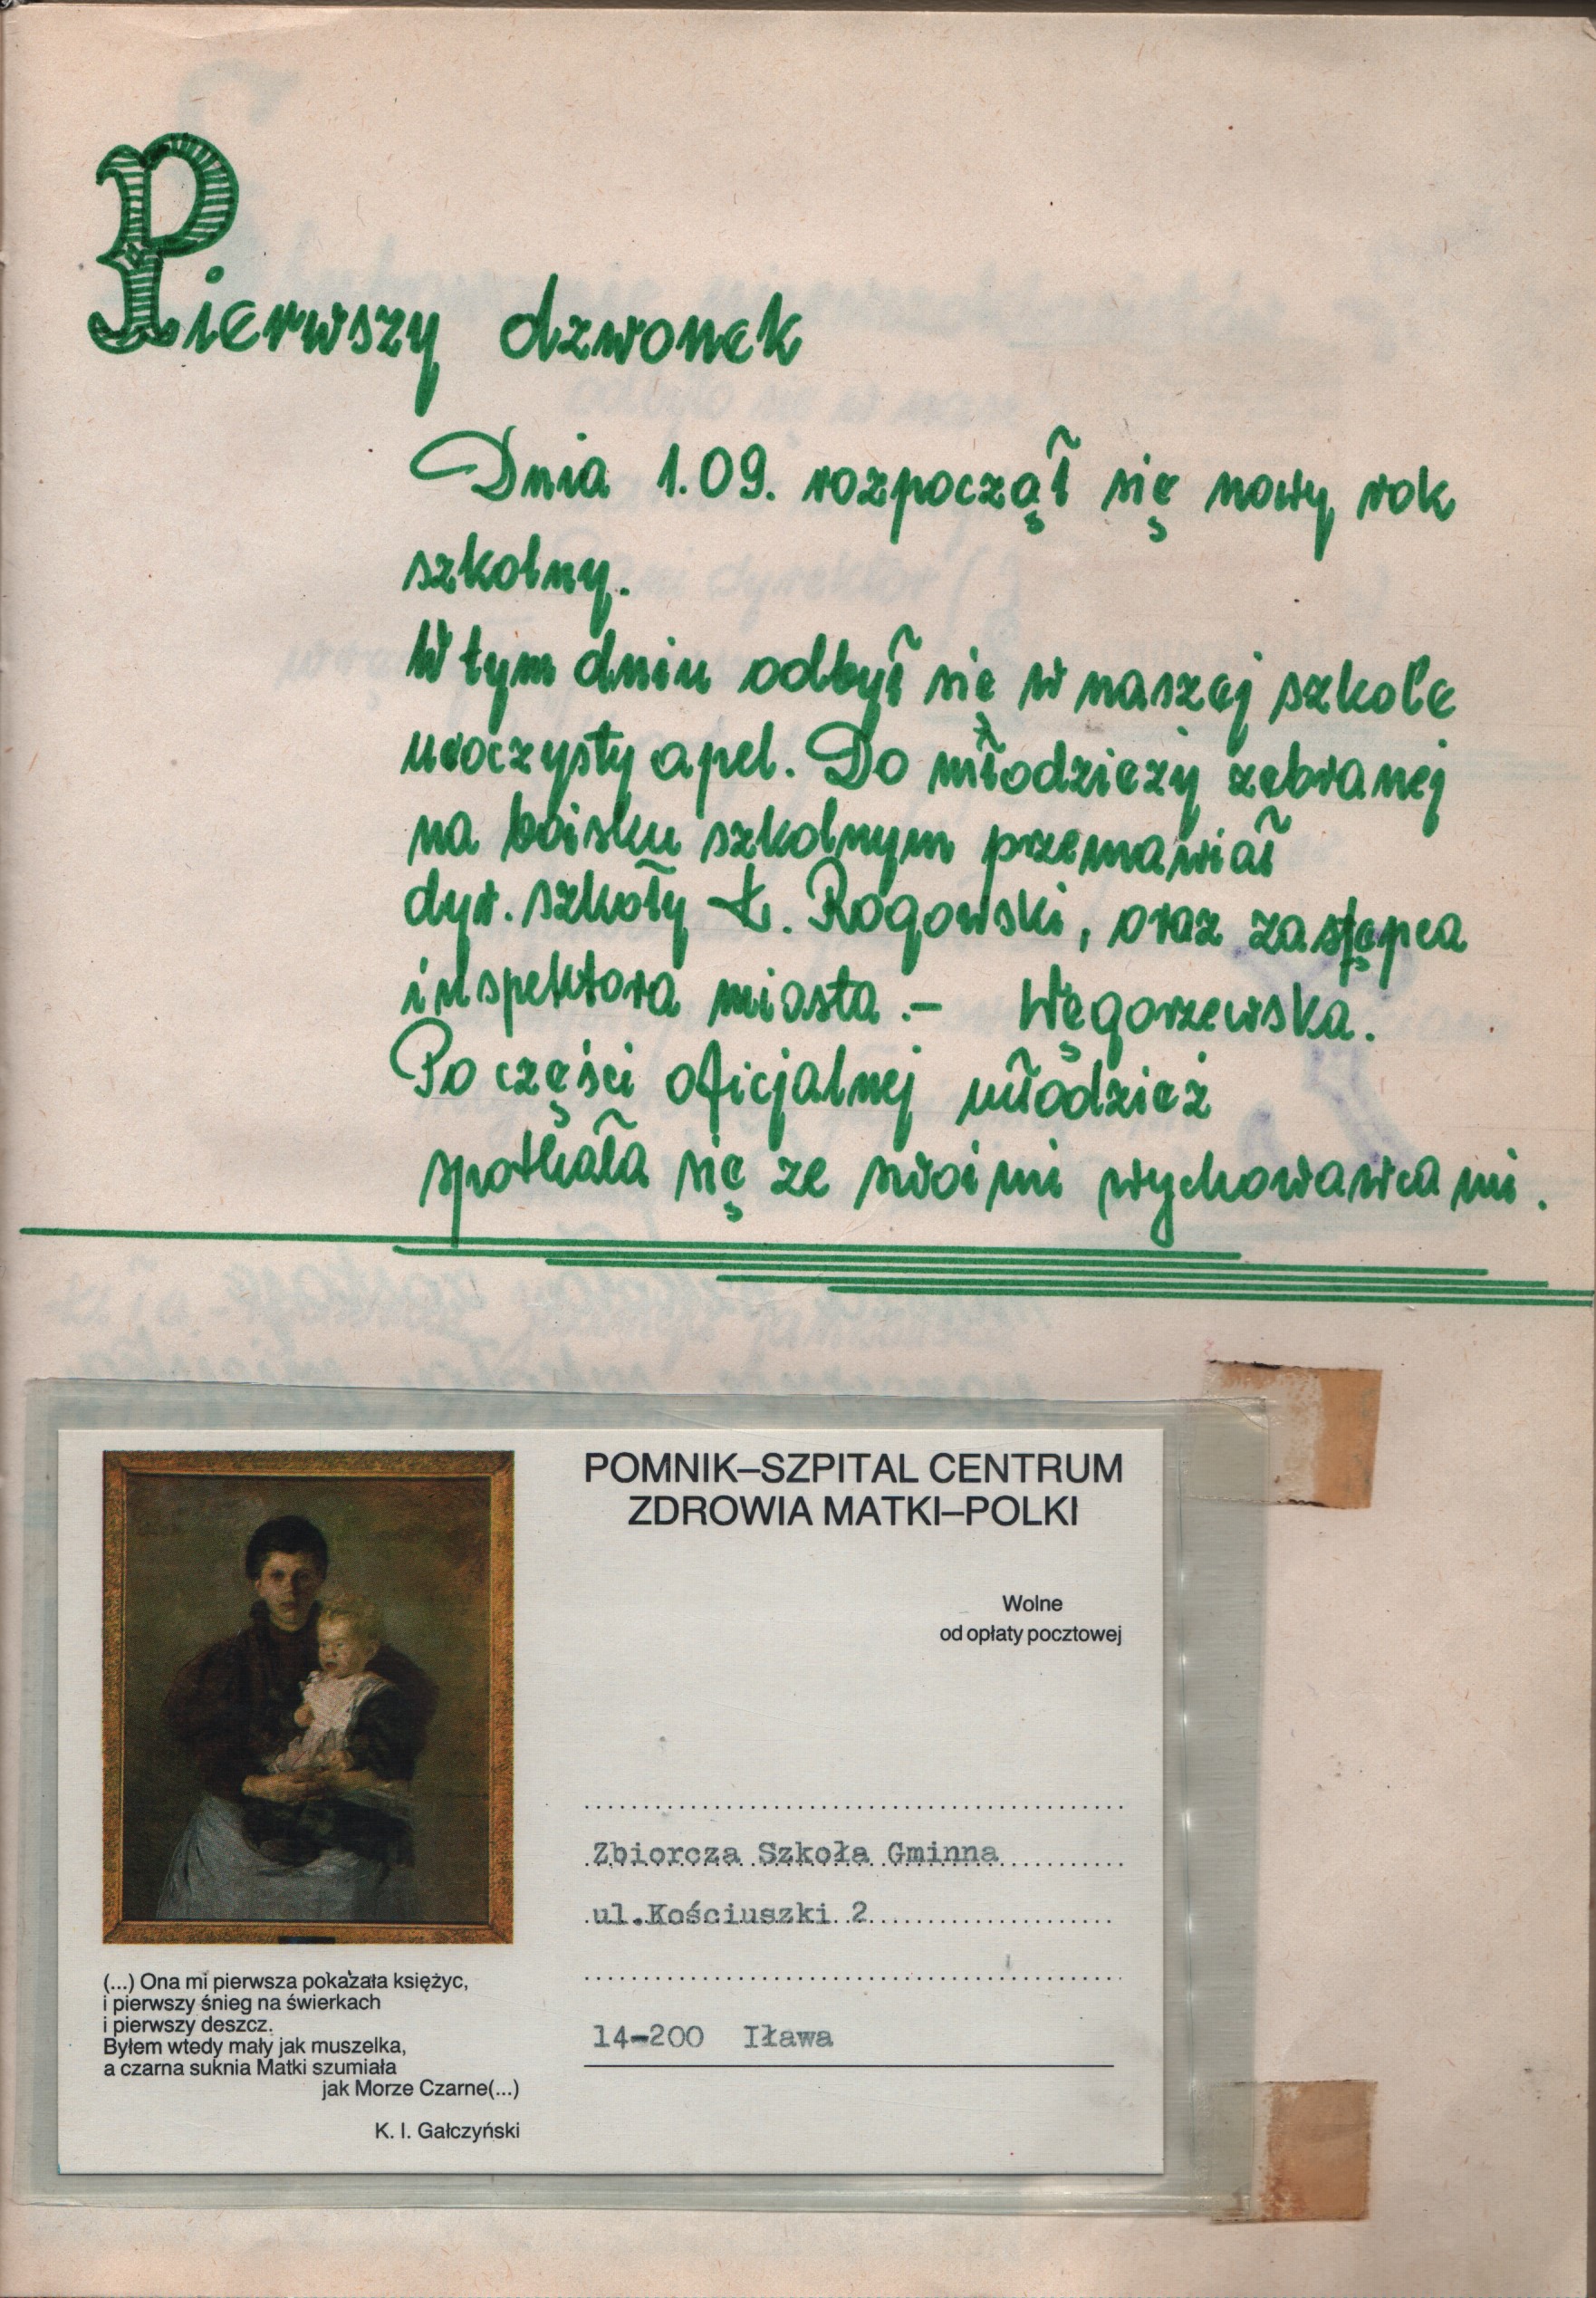 Pierwszy dzwonek
Dnia 1.09. rozpoczął się nowy rok
szkolny.
W tym dniu odbył się w naszej szkole
uroczysty apel. Do młodzieży zebranej
na boisku szkolnym przemawiał
dyr. szkoły Ł. Rogowski, oraz zastępca
inspektora miasta.- Węgorzewska.
Po części oficjalnej młodzież
spotkała się ze swoimi wychowawcami.
POMNIK–SZPITAL CENTRUM
ZDROWIA MATKI–POLKI
Wolne
od opłaty pocztowej
Zbiorcza Szkoła Gminna
ul.Kościuszki 2
14-200 Iława
(...) Ona mi pierwsza pokazała księżyc,
i pierwszy śnieg na świerkach
i pierwszy deszcz.
Byłem wtedy mały jak muszelka,
a czarna suknia Matki szumiała
jak Morze Czarne(...)
K. I. Gałczyński